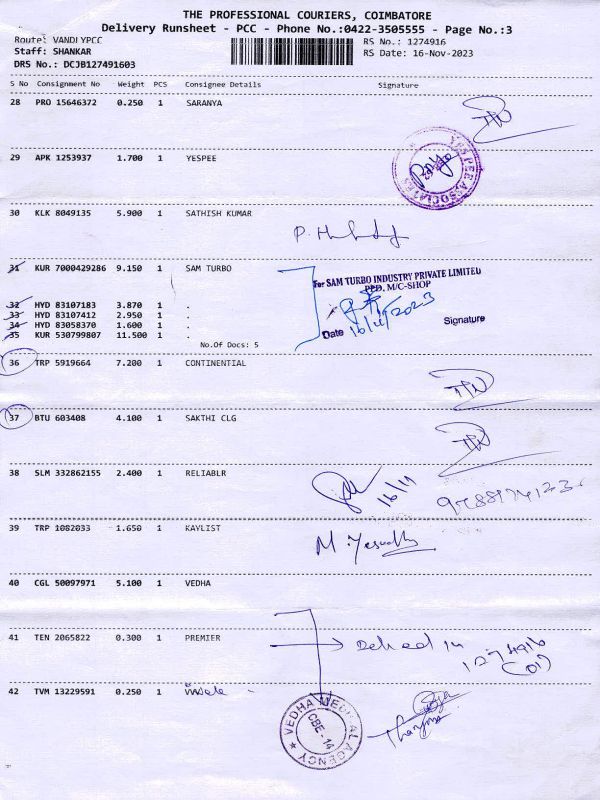 THE PROFESSIONAL COURIERS, COIMBATORE
Delivery Runsheet - PCC - Phone No.:0422-3505555 - Page No.:3
Route: VANDIYPCC
RS No.: 1274916
Staff: SHANKAR
RS Date: 16-Nov-2023
DRS No.: DCJB127491603
S No Consignment No Weight PCS Consignee Details Signature
28 PRO 15646372 0.250 1 SARANYA
29 APK 1253937 1.700 1 YESPEE
YESPEE ASSOCIATES
30 KLK 8049135 5.900 1 SATHISH KUMAR
31 KUR 7000429286 9.150 1 SAM TURBO
For SAM TURBO INDUSTRY PRIVATE LIMITED
PPD, M/C-SHOP
32 HYD 83107183 3.870 1 .
33 HYD 83107412 2.950 1 .
34 HYD 83058370 1.600 1 .
35 KUR 530799807 11.500 1 .
Date 16/11/2023 Signature
No.Of Docs: 5
36 TRP 5919664 7.200 1 CONTINENTIAL
37 BTU 603408 4.100 1 SAKTHI CLG
38 SLM 332862155 2.400 1 RELIABLR
16/11
39 TRP 1082033 1.650 1 KAYLIST
40 CGL 50097971 5.100 1 VEDHA
41 TEN 2065822 0.300 1 PREMIER
1274916
(01)
42 TVM 13229591 0.250 1
VEDHA MEDICAL AGENCY
CBE - 14